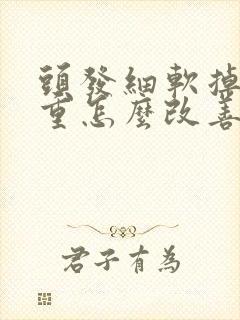 頭發細軟掉
重怎麼改善
君子有為